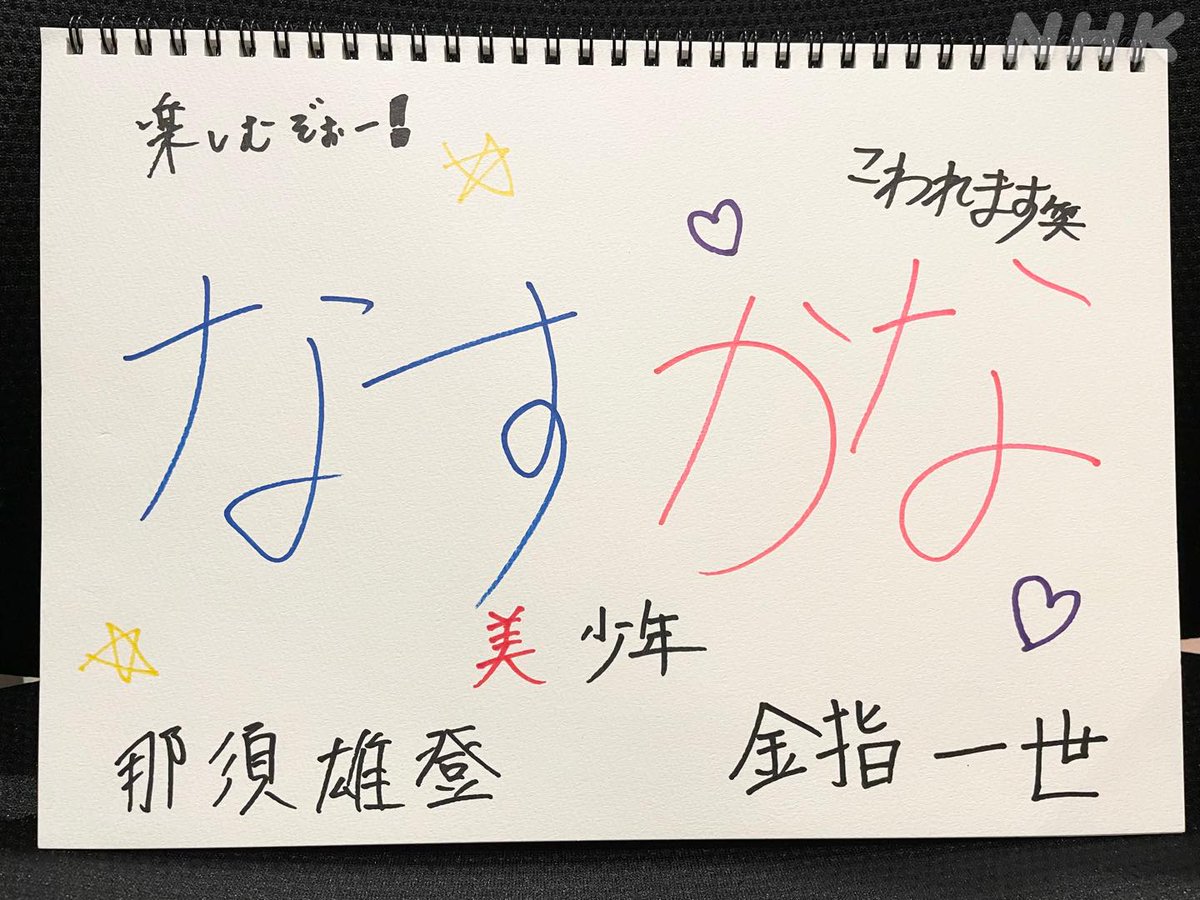 NHK
楽しむぞぉー!
こわれます笑
なす かな
美 少年
那須雄登
金指一世